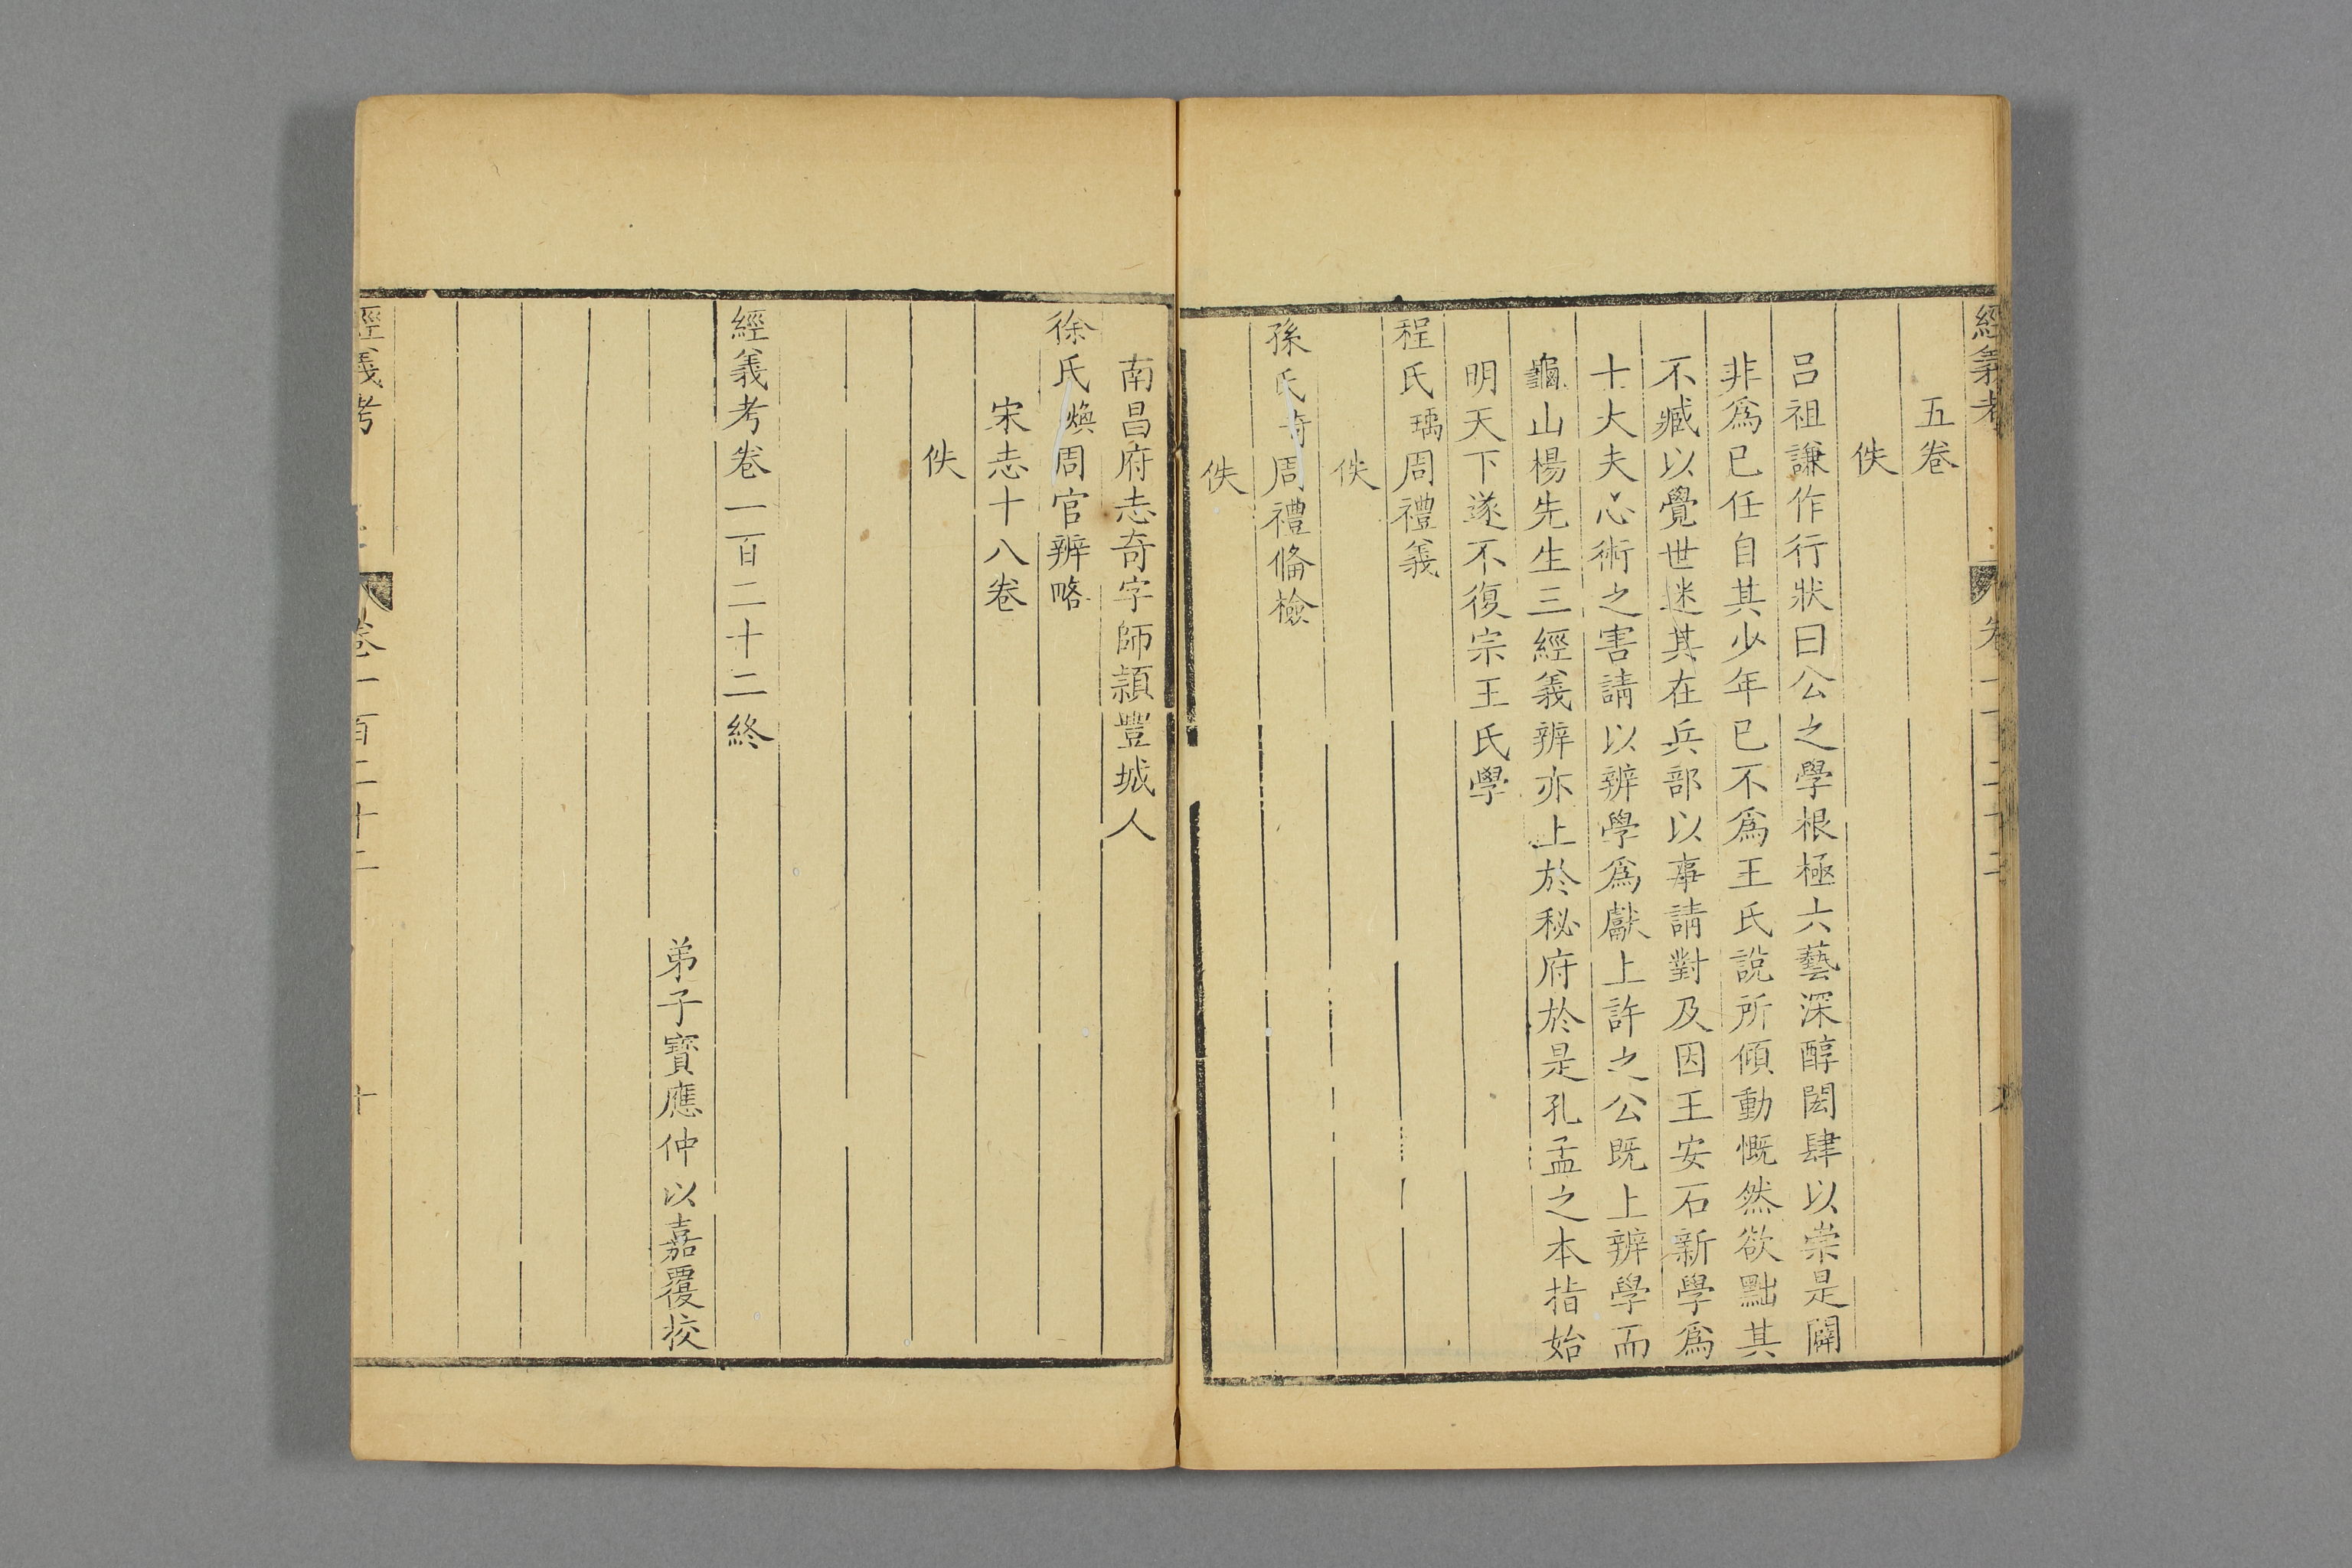 經義考
五卷
佚
吕祖謙作行狀曰公之學根極六藝深醇閎肆以崇是闢
非爲已任自其少年已不爲王氏說所傾動慨然欲黜其
不臧以覺世迷其在兵部以事請對及因王安石新學爲
士大夫心術之害請以辨學爲獻上許之公既上辨學而
龜山楊先生三經義辨亦上於秘府於是孔孟之本指始
明天下遂不復宗王氏學
程氏瑀周禮義
佚
孫氏奇周禮俻檢
佚
南昌府志奇字師頴豐城人
徐氏煥周官辨略
宋志十八卷
佚
經義考卷一百二十二終
弟子寶應仲以嘉覆挍
經義考 卷一百二十二 十